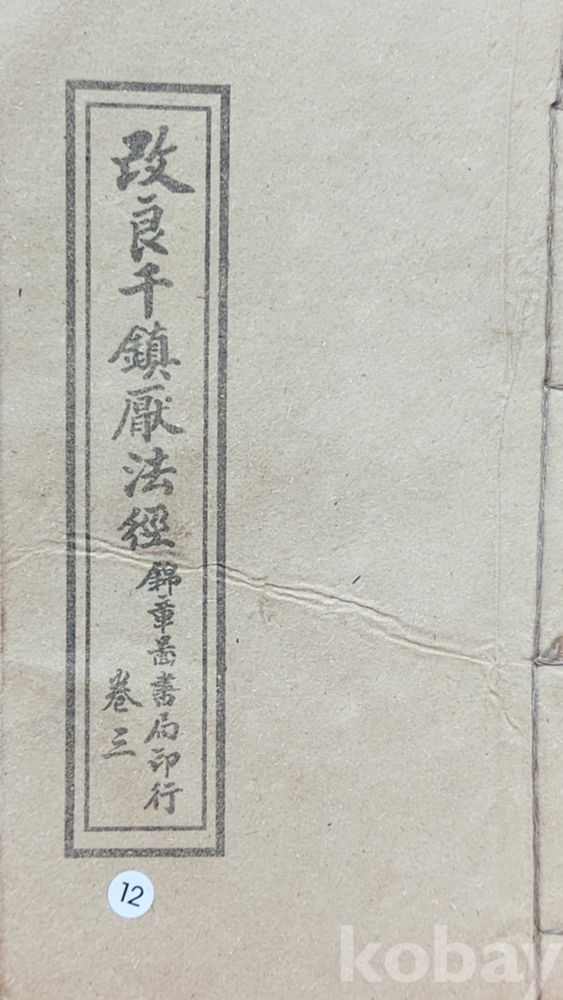 改良千鎮厭法經
錦章啚書局印行
卷三
12
kobay